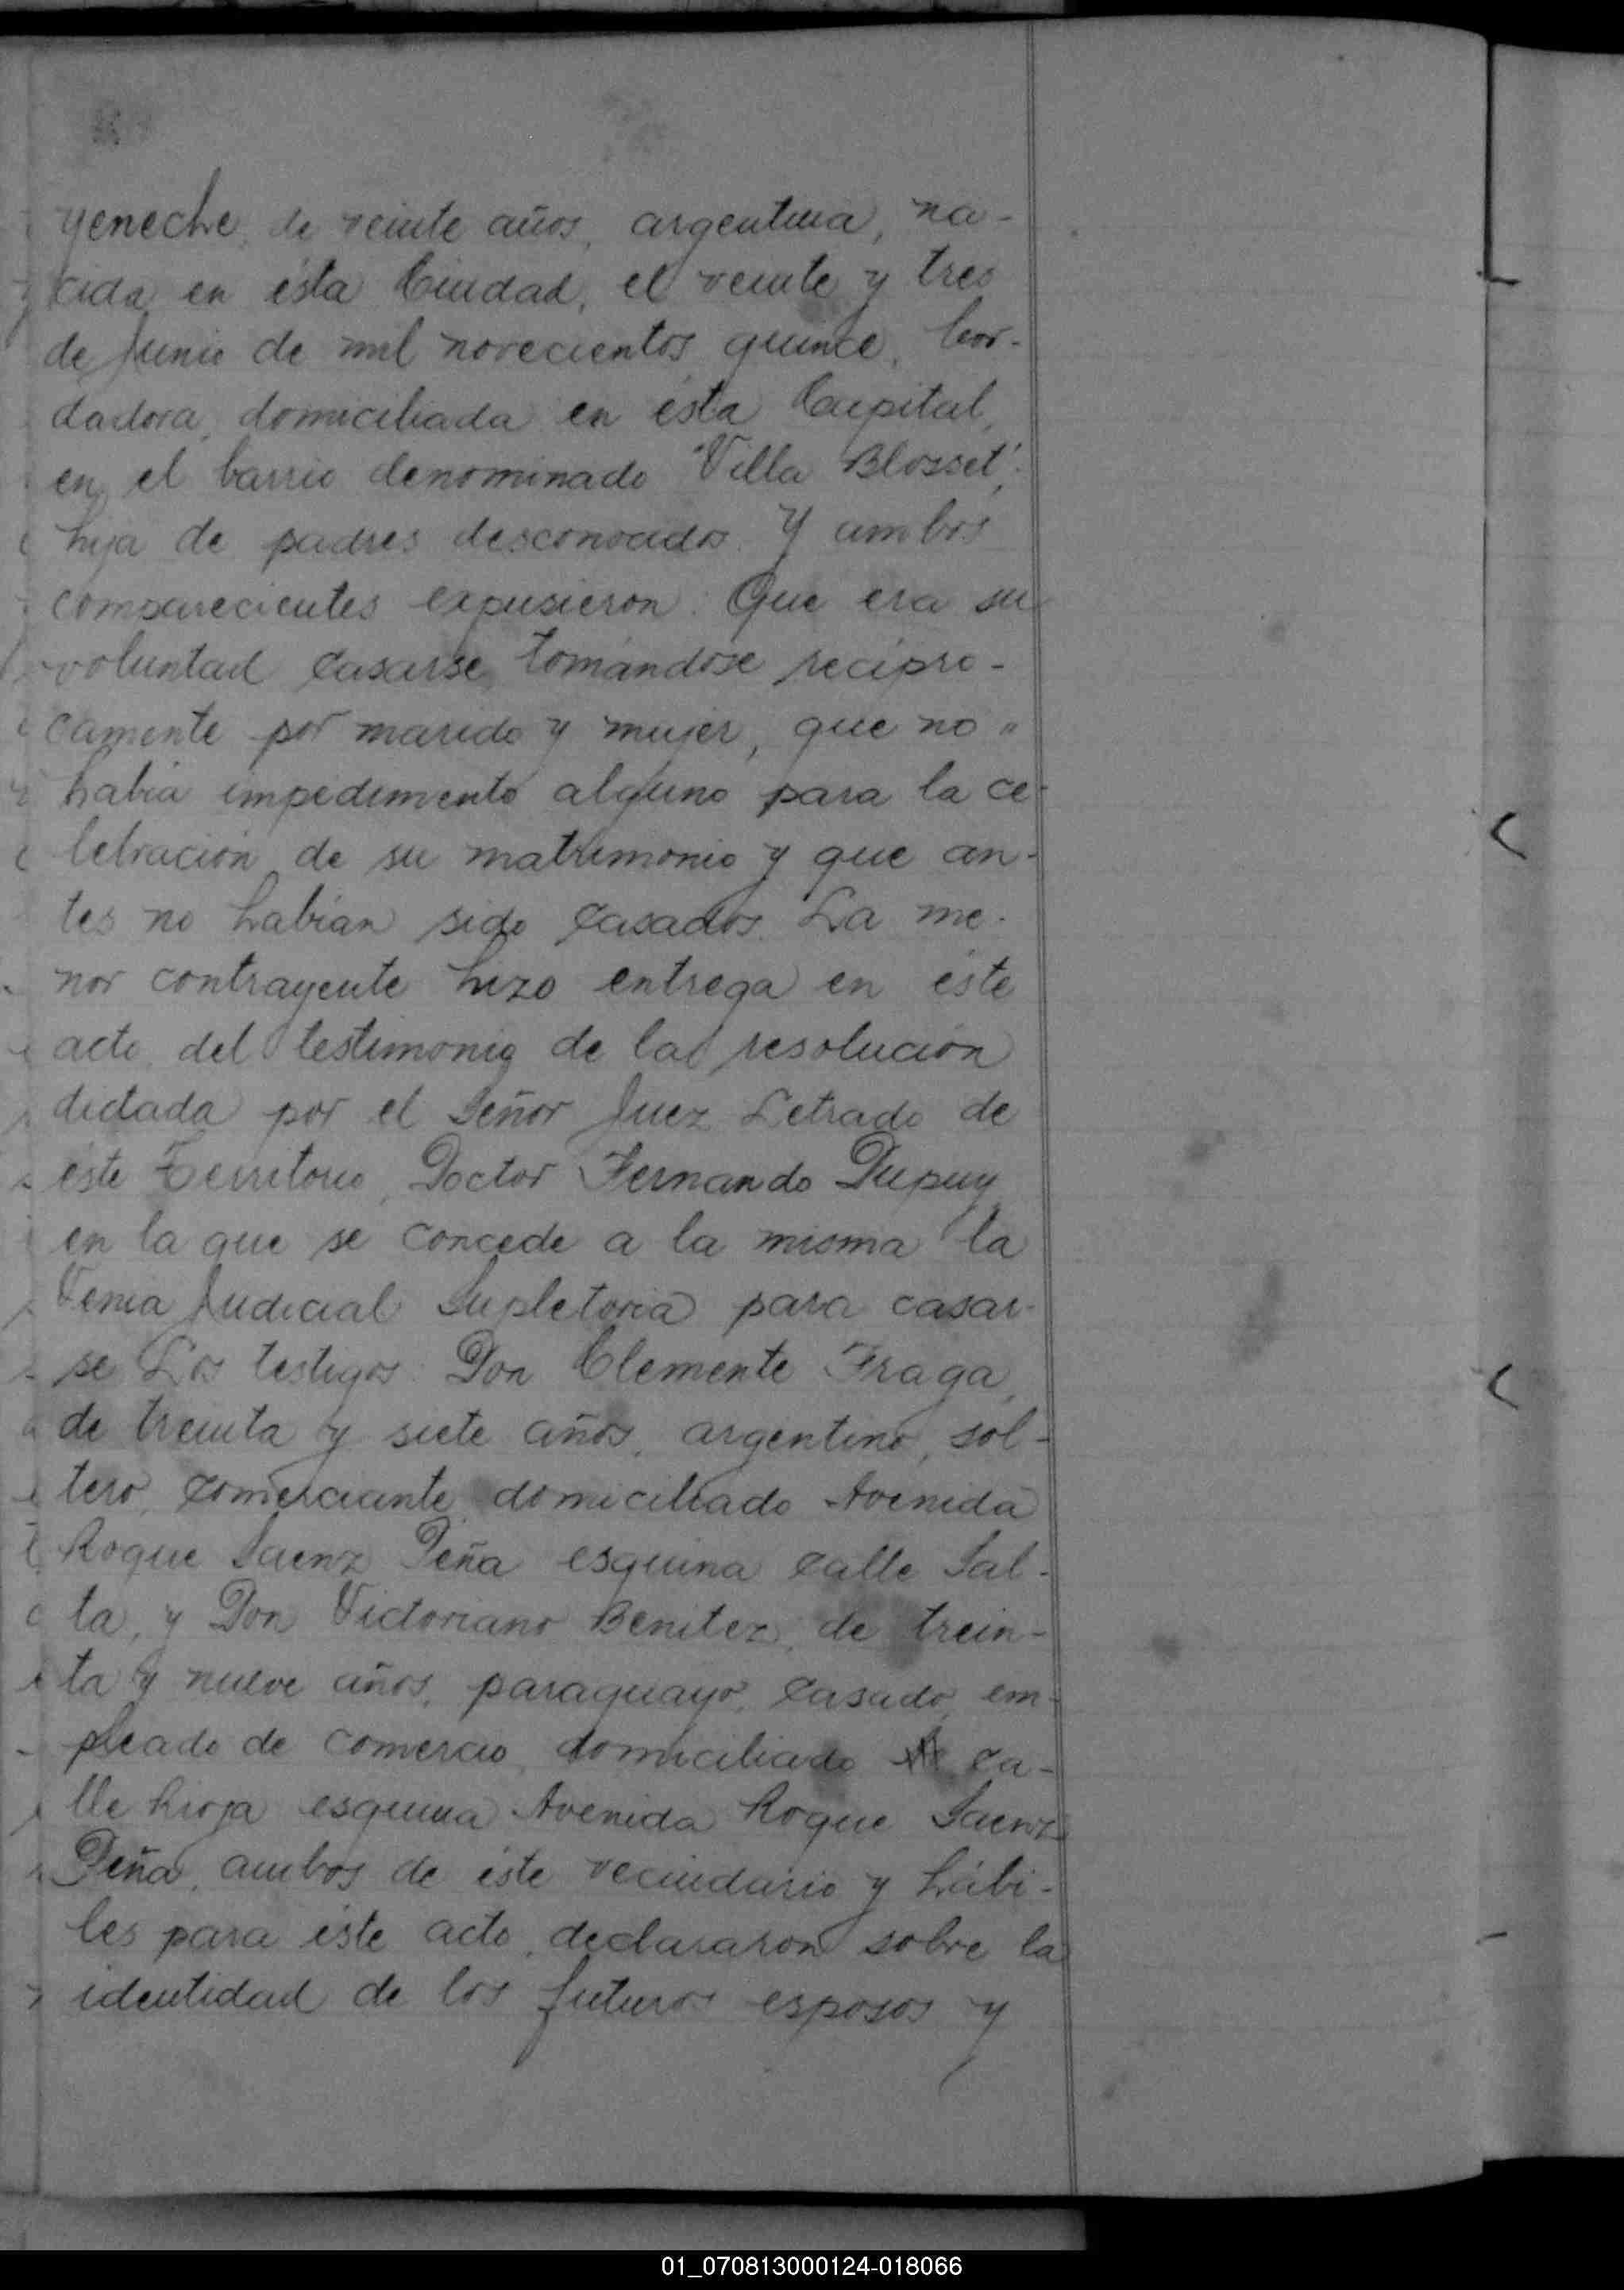 yeneche, de veinte años, argentina, na-
cida en ésta Ciudad, el veinte y tres
de Junio de mil novecientos quince, bor-
dadora, domiciliada en ésta Capital,
en el barrio denominado "Villa Blosset",
hija de padres desconocidos. Y ambos
comparecientes expusieron: Que era su
voluntad casarse, tomándose recípro-
camente por marido y mujer, que no "
había impedimento alguno para la ce-
lebración de su matrimonio y que an-
tes no habían sido casados. La me-
nor contrayente hizo entrega en éste
acto, del testimonio de la resolución
dictada por el Señor Juez Letrado de
éste Territorio, Doctor Fernando Dupuy
en la que se concede a la misma la
Venia Judicial Supletoria para casar-
se. Los testigos: Don Clemente Fraga,
de treinta y siete años, argentino, sol-
tero, comerciante, domiciliado Avenida
Roque Saenz Peña esquina calle Sal-
ta, y Don Victoriano Benitez, de trein-
ta y nueve años, paraguayo, casado, em-
pleado de comercio, domiciliado ca-
lle Rioja esquina Avenida Roque Saenz
Peña, ambos de éste vecindario y hábi-
les para éste acto, declararon sobre la
identidad de los futuros esposos y
01_070813000124-018066